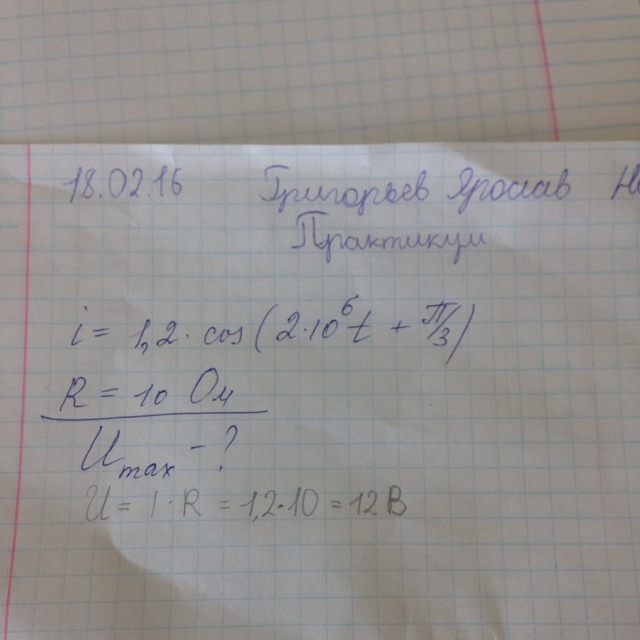 18.02.16 Григорьев Ярослав
Практикум
i = 1,2 · cos (2·10⁶t + π/3)
R = 10 Ом
Umax - ?
U = I · R = 1,2·10 = 12 В